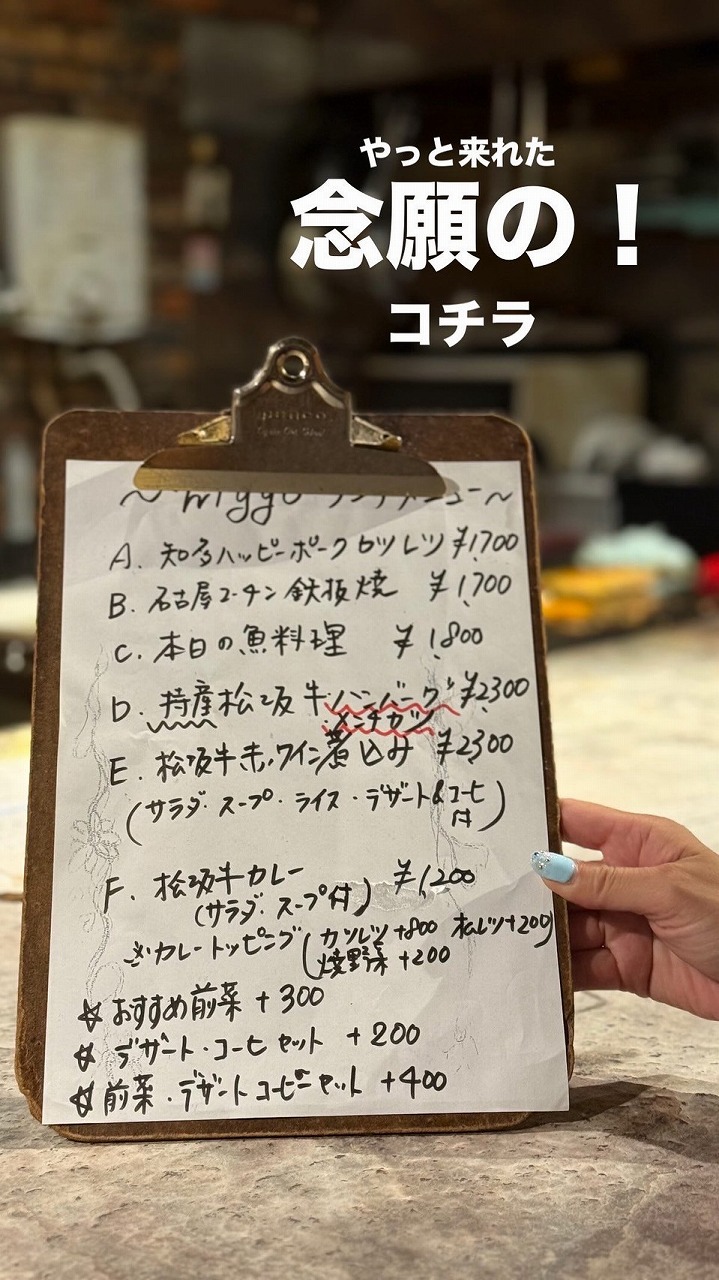 やっと来れた
念願の！
コチラ
～ niggo ランチメニュー～
A. 知多ハッピーポークカツレツ ¥1,700
B. 名古屋コーチン 鉄板焼 ¥1,700
C. 本日の魚料理 ¥1,800
D. 特産松坂牛ハンバーグ ¥2300
メンチカツ
E. 松坂牛赤ワイン煮込み ¥2300
(サラダ・スープ・ライス・デザート&コーヒ付)
F. 松坂牛カレー ¥1,200
(サラダ・スープ付)
※カレートッピング(カツレツ+800 オムレツ+200)
焼野菜 +200
☆おすすめ前菜 +300
☆ デザート・コーヒ セット +200
☆前菜・デザートコーヒーセット +400